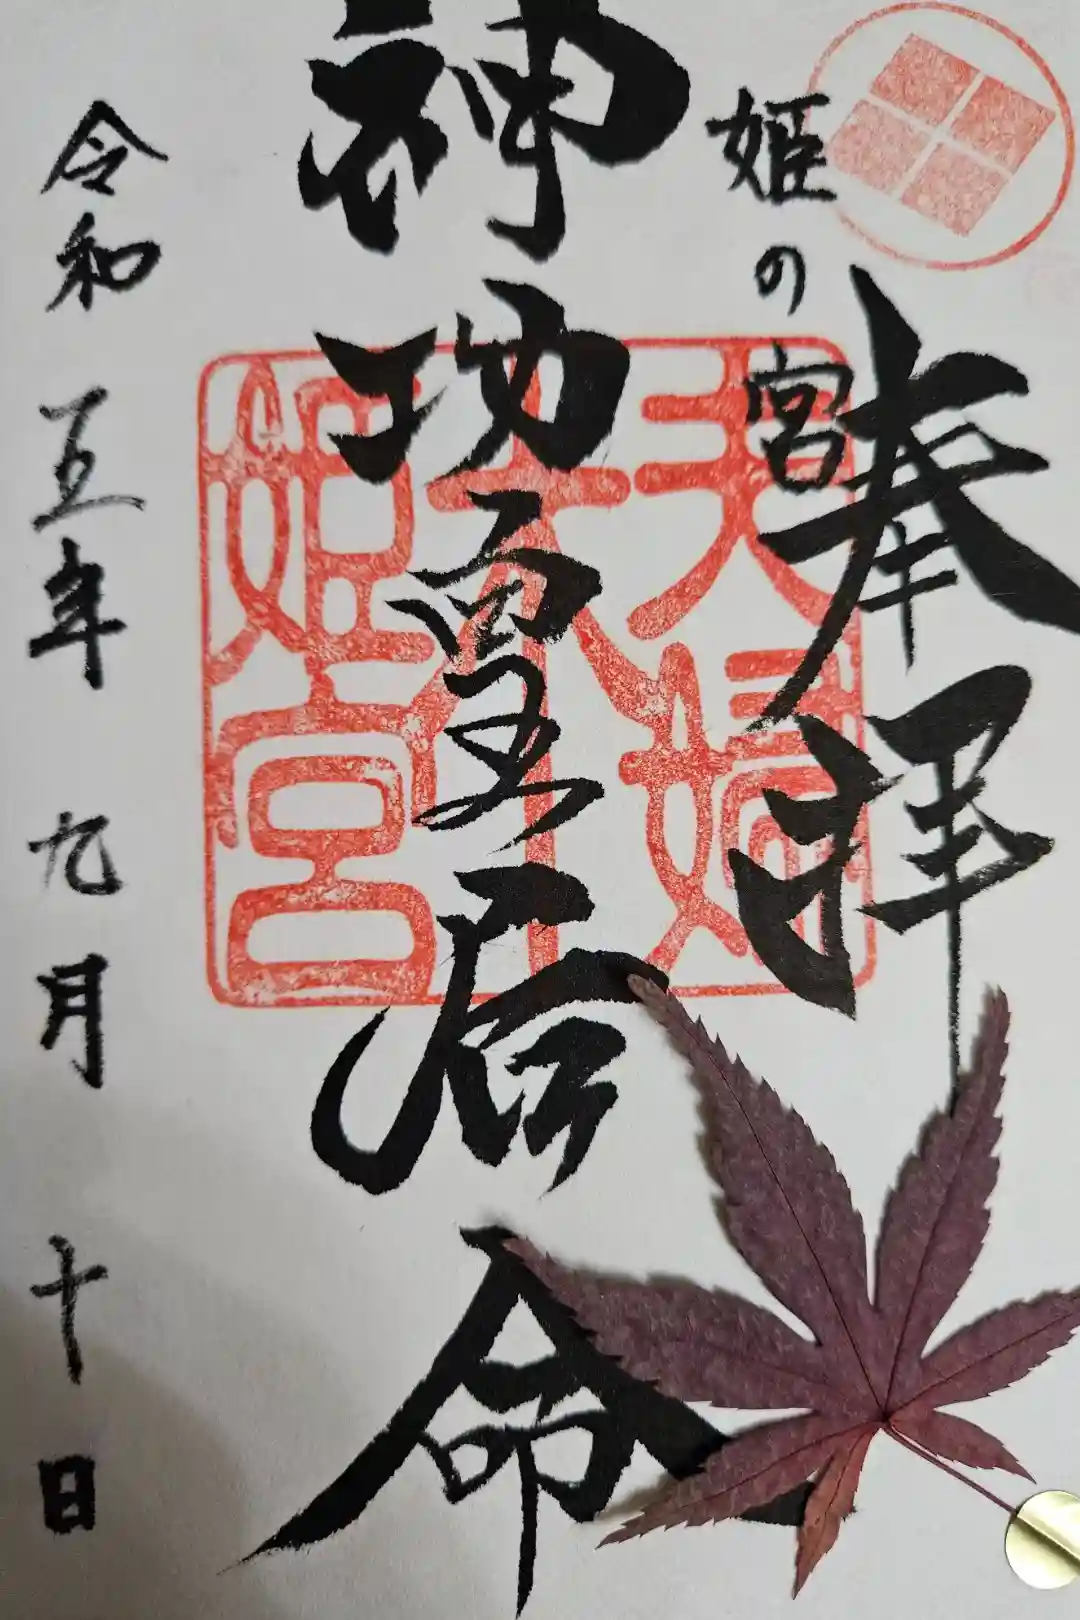 奉拝
姫の宮
神功皇后命
令和五年九月十日
夫婦
木
姫宮